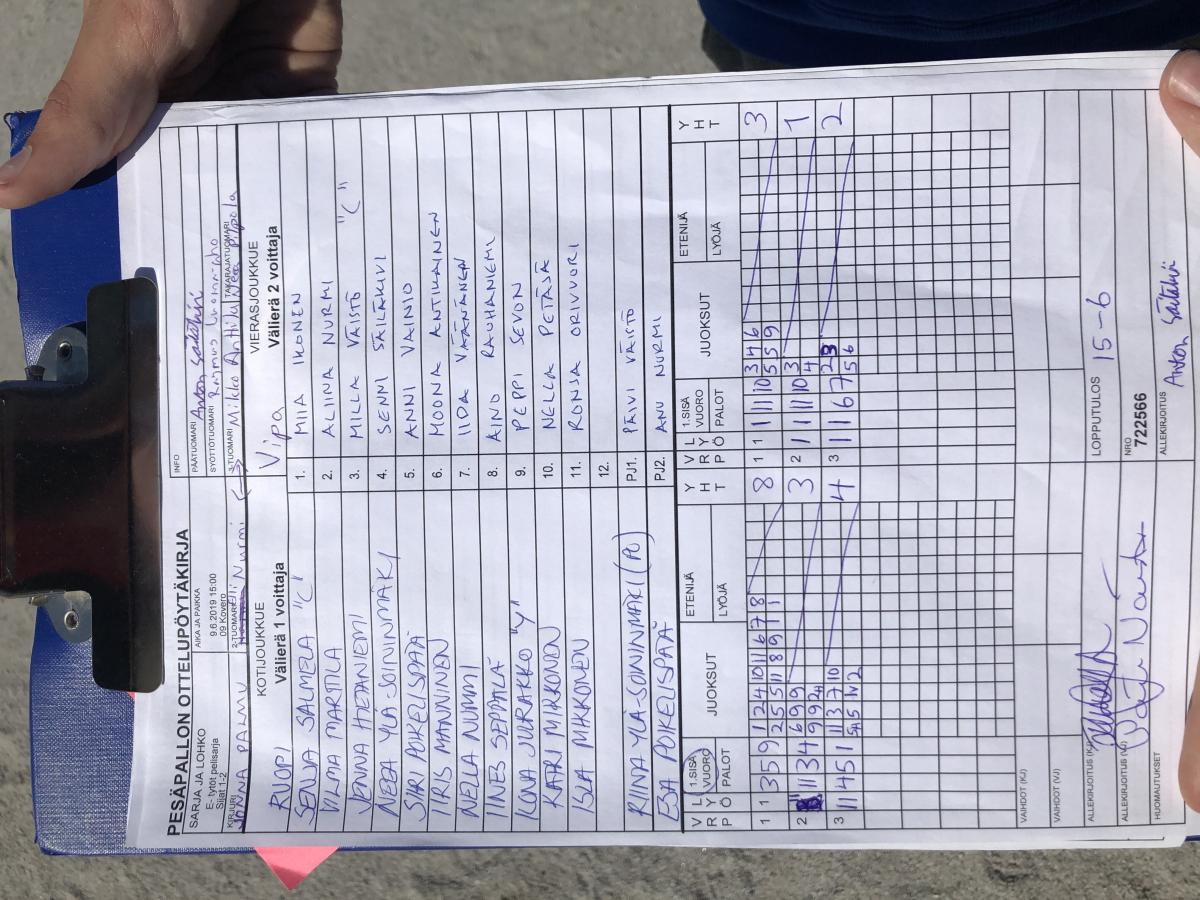 PESÄPALLON OTTELUPÖYTÄKIRJA
SARJA JA LOHKO
E- tytöt pelisarja
Sijat 1-2
AIKA JA PAIKKA
9.6.2019 15:00
09 Kovero
INFO
PÄÄTUOMARI Anton Säilähti
SYÖTTÖTUOMARI Rasmus
KIRJURI JONNA PALMU
2-TUOMARI Nurmi
3-TUOMARI Mikko Anttila
TAKARAJATUOMARI Nea Pipola
KOTIJOUKKUE
Välierä 1 voittaja
VIERASJOUKKUE
Välierä 2 voittaja
RUOPI
Vipa
SENJA SALMELA "C"
1. MIIA IKONEN
VILMA MARTTILA
2. ALIINA NURMI
JENNA HIETANIEMI
3. MILLA VÄISTÖ "C"
NEEA YLÄ-SOININMÄKI
4. SENNI SÄILÄKIVI
SIIRI POIKELISPÄÄ
5. ANNI VAINIO
IRIS MANNINEN
6. MOONA ANTIKAINEN
NELLA NUMMI
7. IIDA VÄÄNÄNEN
INES SEPPÄLÄ
8. AINO RAUHANIEMI
ILONA JUURAKKO "Y"
9. PEPPI SEVON
KATRI MIKKONEN
10. NELLA PETÄSÄ
ISLA MIKKONEN
11. RONJA ORIVUORI
12.
RIINA YLÄ-SOININMÄKI (PV)
PJ1. PÄIVI VÄISTÖ
ESA POIKELISPÄÄ
PJ2. ANU NURMI
V R L Y Ö P 1.SISÄ VUORO PALOT JUOKSUT ETENIJÄ LYÖJÄ Y H T
V R L Y Ö P 1.SISÄ VUORO PALOT JUOKSUT ETENIJÄ LYÖJÄ Y H T
1 1 3 5 9 1 2 4 10 11 6 7 8 8
2 5 5 11 8 9 1 1
1 1 1 11 10 3 4 6 3
5 5 9
2 11 3 4 6 9 9 3
9 9
2 1 1 11 10 3 1
4
3 11 4 5 1 11 3 7 10 4
3 1 1 6 7 2
5 6
VAIHDOT (KJ)
VAIHDOT (VJ)
ALLEKIRJOITUS (KJ)
LOPPUTULOS 15-6
ALLEKIRJOITUS (VJ)
NRO
722566
HUOMAUTUKSET
ALLEKIRJOITUS
Anton Säilähti